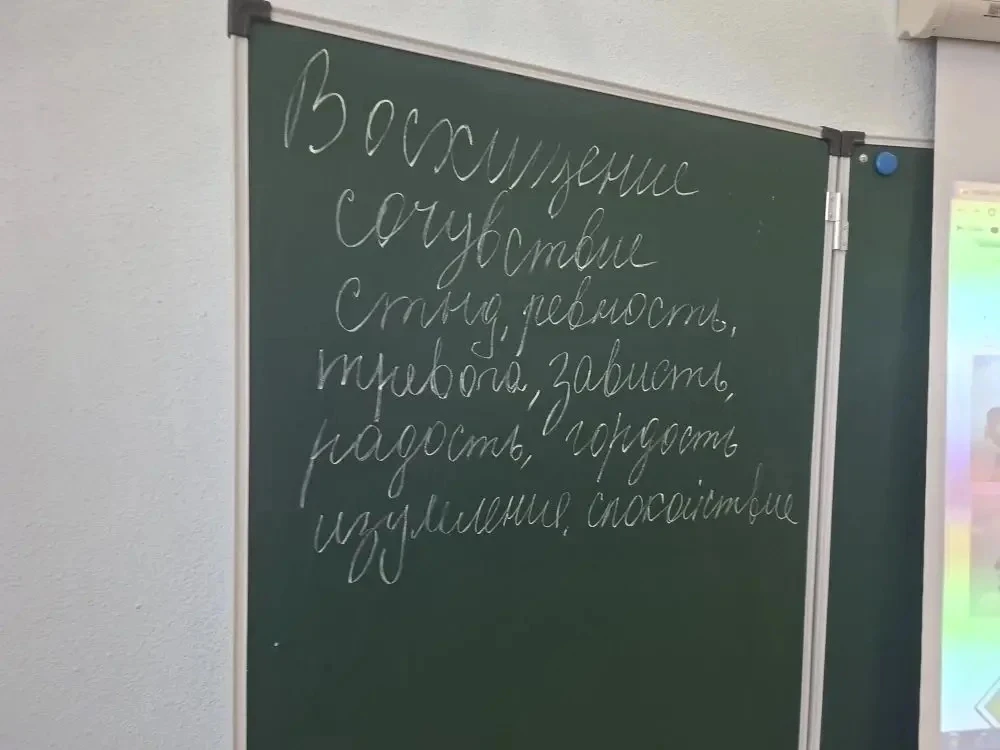 Восхищение
сочувствие
стыд, ревность,
тревога, зависть,
радость, гордость
изумление, спокойствие